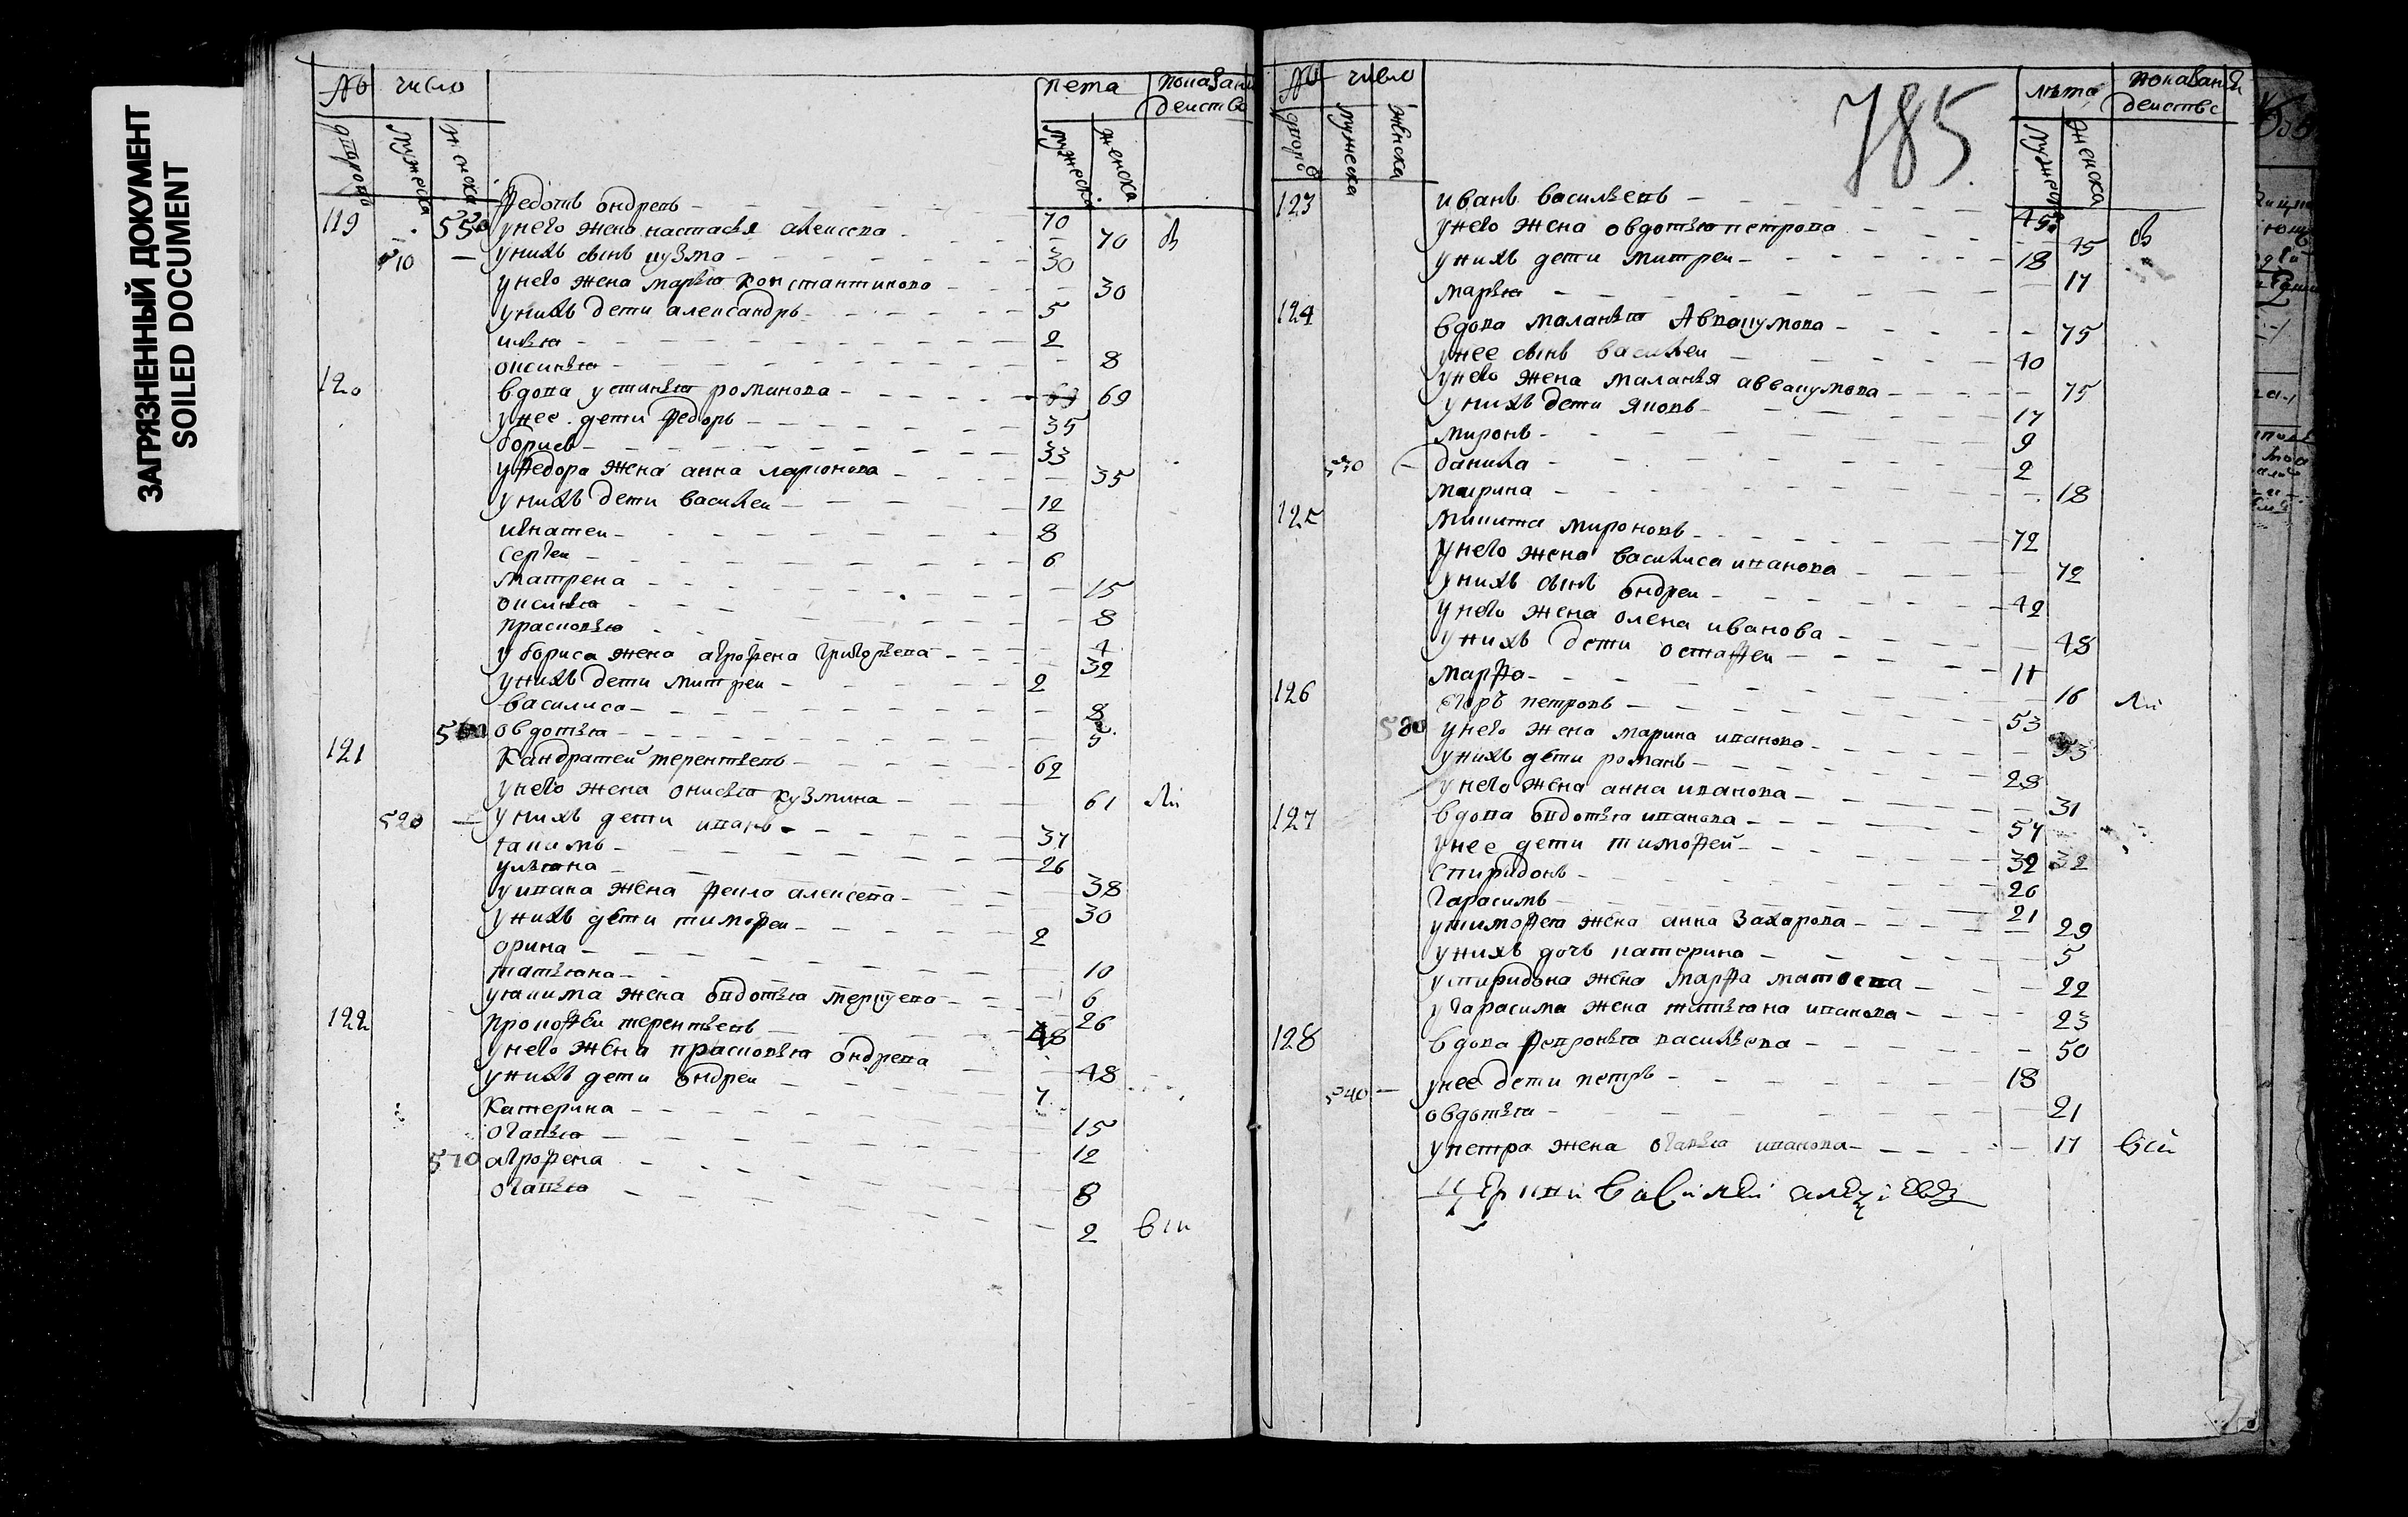 ЗАГРЯЗНЕННЫЙ ДОКУМЕНТ
SOILED DOCUMENT
№ число лета показани
деиство
дворовъ мужеска женска мужеска женска
119 Федотъ ондревъ 70
550 унего жена настасья алексеева 70
510 унихъ сынъ кузма 30
унего жена марья константинова 30
унихъ дети александръ 5
илья 2
оксинья 8
120 вдова устинья романова 69
унее дети федоръ 35
борисъ 33
уфедора жена анна ларионова 35
унихъ дети василеи 12
игнатеи 8
сергеи 6
матрена 15
оксинья 8
прасковья 4
у бориса жена агрофена григорьева 32
унихъ дети митреи 2
василиса 8
560 овдотья 5
121 Кандратей терентьевъ 62
унего жена онисья кузмина 61
520 унихъ дети иванъ 37
акимъ 26
ульяна 38
уивана жена фекла алексеева 30
унихъ дети тимофеи 2
орина 10
татьяна 6
уакима жена овдотья меркуева 26
122 прокофеи терентьевъ 48
унего жена прасковья ондреева 48
унихъ дети ондреи 7
катерина 15
огафья 12
570 агрофена 8
огафья 2
№ число 785 лета показаний
деиство
дворовъ мужеска женска мужеска женска
123 иванъ васильевъ 45
унего жена овдотья петрова 45
унихъ дети митреи 18
марья 17
124 вдова маланья Авакумова 75
унее сынъ василеи 40
унего жена маланья аввакумова 75
унихъ дети яковъ 17
миронъ 9
530 данила 2
марина 18
125 микита мироновъ 72
унего жена василиса иванова 72
унихъ сынъ ондреи 42
унего жена олена иванова 48
унихъ дети остафеи 11
марфа 16
126 егоръ петровъ 53
580 унего жена марина иванова 53
унихъ дети романъ 28
унего жена анна иванова 31
127 вдова овдотья иванова 57
унее дети тимофей 32 32
спиридонъ 26
гарасимъ 21
утимофея жена анна захарова 29
унихъ дочь катерина 5
успиридона жена марфа матвеева 22
угарасима жена татьяна иванова 23
128 вдова февронья васильева 50
540 унее дети петръ 18
овдотья 21
упетра жена огафья иванова 17